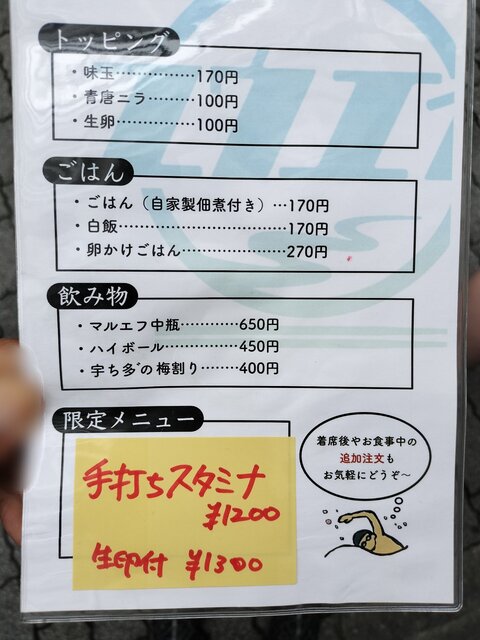 トッピング
・味玉……………170円
・青唐ニラ…………100円
・生卵………………100円
ごはん
・ごはん（自家製佃煮付き）…170円
・白飯…………………………170円
・卵かけごはん………………270円
飲み物
・マルエフ中瓶…………650円
・ハイボール……………450円
・宇ち多゛の梅割り………400円
限定メニュー
手打ちスタミナ
¥1200
生卵付 ¥1300
着席後やお食事中の
追加注文も
お気軽にどうぞ〜